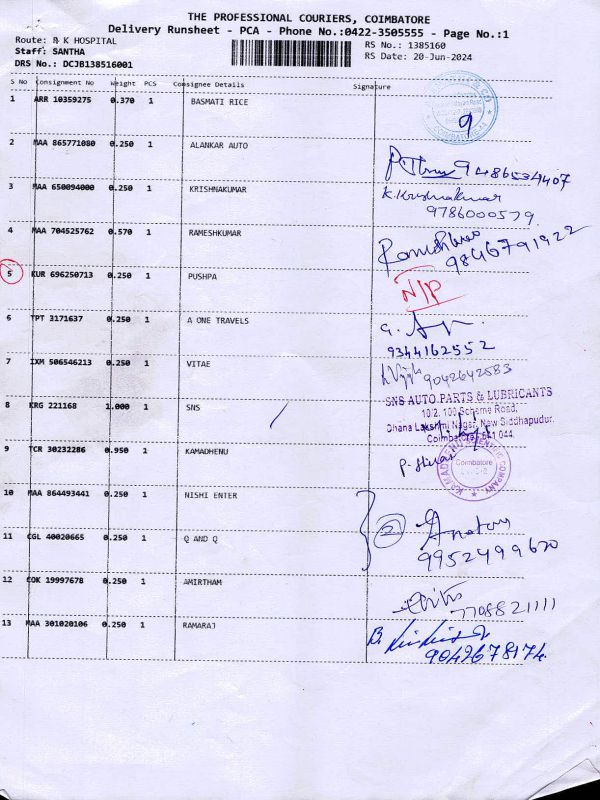 THE PROFESSIONAL COURIERS, COIMBATORE
Delivery Runsheet - PCA - Phone No.:0422-3505555 - Page No.:1
Route: R K HOSPITAL
RS No.: 1385160
Staff: SANTHA
RS Date: 20-Jun-2024
DRS No.: DCJB138516001
S No Consignment No Weight PCS Consignee Details Signature
1 ARR 10359275 0.370 1 BASMATI RICE
COIMBATORE
9
2 MAA 865771080 0.250 1 ALANKAR AUTO
9486534407
3 MAA 650094000 0.250 1 KRISHNAKUMAR K.Krishnakumar
9786000579
4 MAA 704525762 0.570 1 RAMESHKUMAR
9846791922
5 KUR 696250713 0.250 1 PUSHPA N/P
6 TPT 3171637 0.250 1 A ONE TRAVELS
9344162552
7 IXM 506546213 0.250 1 VITAE 9042642583
8 KRG 221168 1.000 1 SNS
SNS AUTO PARTS & LUBRICANTS
10/2, 100 Scheme Road,
Dhana Lakshmi Nagar, New Siddhapudur,
Coimbatore 641 044.
9 TCR 30232286 0.950 1 KAMADHENU
KAMADHENU SCIENTIFIC COMPANY
Coimbatore
10 MAA 864493441 0.250 1 NISHI ENTER
11 CGL 40020665 0.250 1 Q AND Q
2
9952499620
12 COK 19997678 0.250 1 AMIRTHAM
7708821111
13 MAA 301020106 0.250 1 RAMARAJ
9042678174